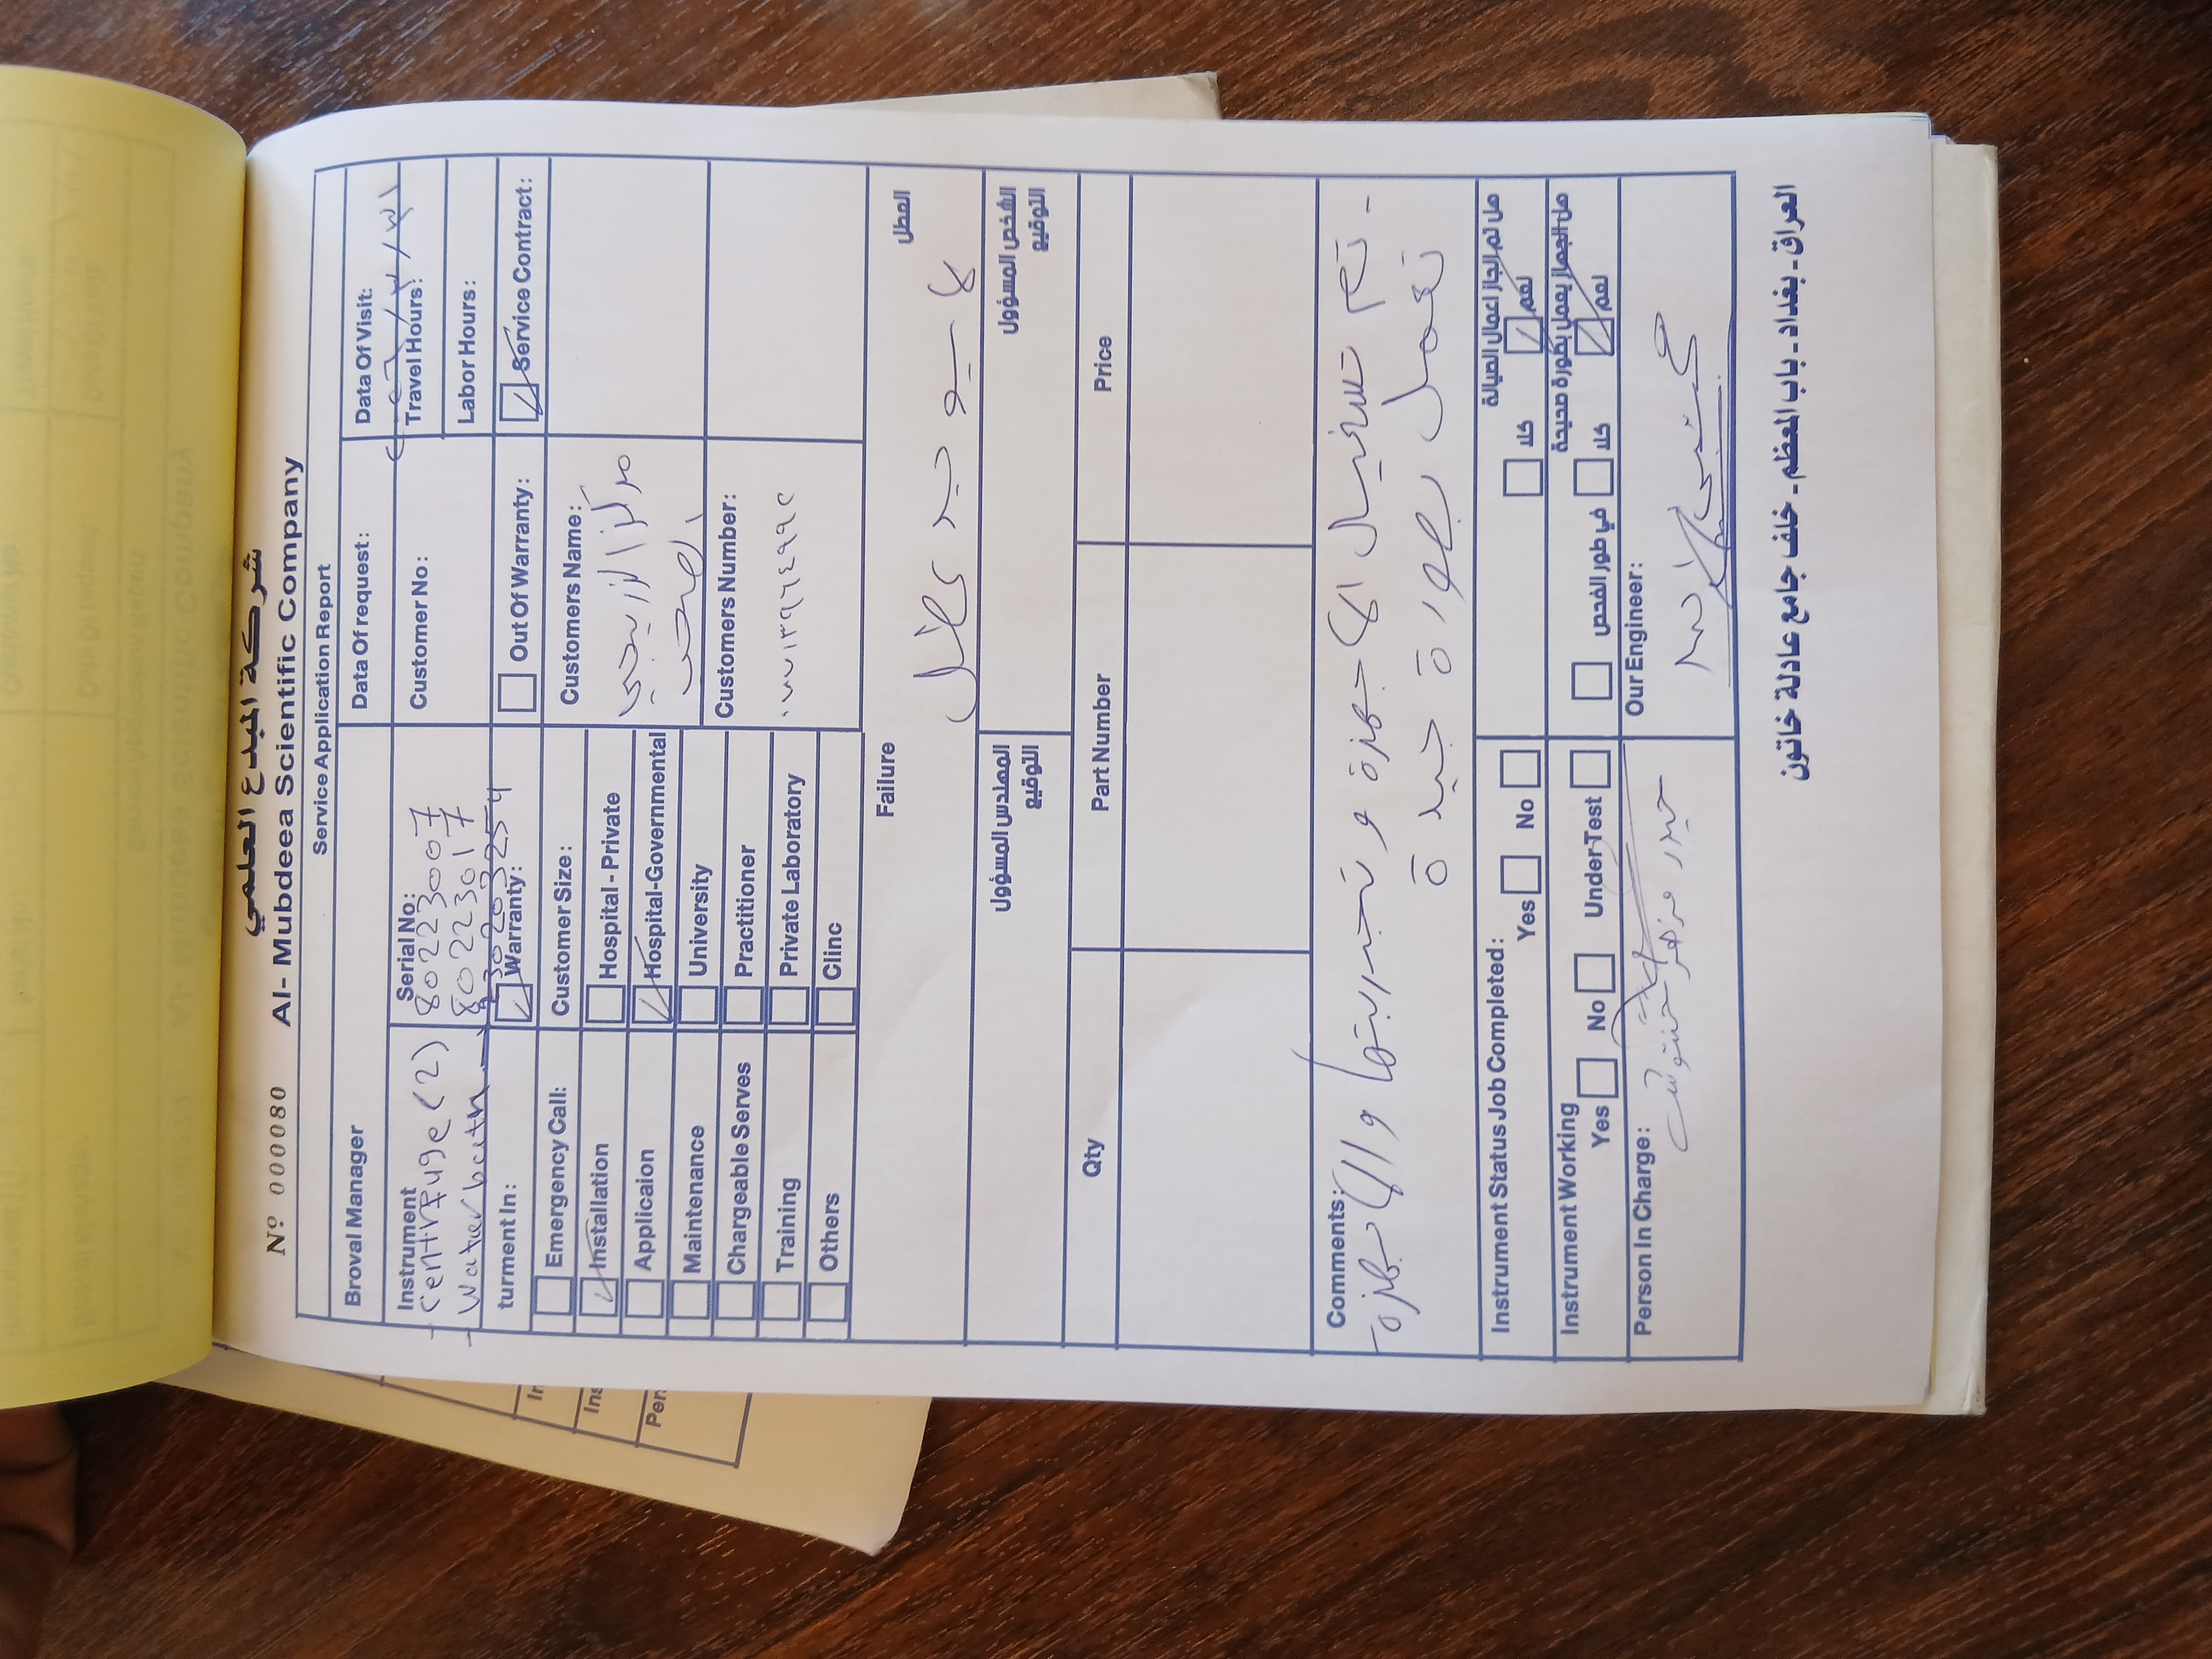 شركة المبدع العلمي
Nº 000080 Al- Mubdeea Scientific Company
Service Application Report
Broval Manager
Data Of request:
Data Of Visit:
Instrument
Serial No:
Customer No:
Travel Hours:
- Centrifuge (2)
80223007
80223017
Labor Hours:
- Water bath
turment In:
Warranty:
Out Of Warranty:
Service Contract:
Emergency Call:
Customer Size:
Customers Name:
Installation
Hospital - Private
مركز
الصحي
Applicaion
Hospital-Governmental
Maintenance
University
Customers Number:
Chargeable Serves
Practitioner
Training
Private Laboratory
Others
Clinc
Failure
العطل
لا يوجد عطل
المهندس المسؤول
التوقيع
الشخص المسؤول
التوقيع
Qty
Part Number
Price
Comments:
- تم تشغيل الاجهزة و تجربتها والاجهزة
تعمل بصورة جيدة
Instrument Status Job Completed:
Yes No
هل تم انجاز اعمال الصيانة
نعم كلا
Instrument Working
Yes No Under Test
هل الجهاز يعمل بصورة صحيحة
نعم كلا في طور الفحص
Person In Charge:
حيدر
Our Engineer:
العراق - بغداد - باب المعظم - خلف جامع عادلة خاتون
In
Ins
Per